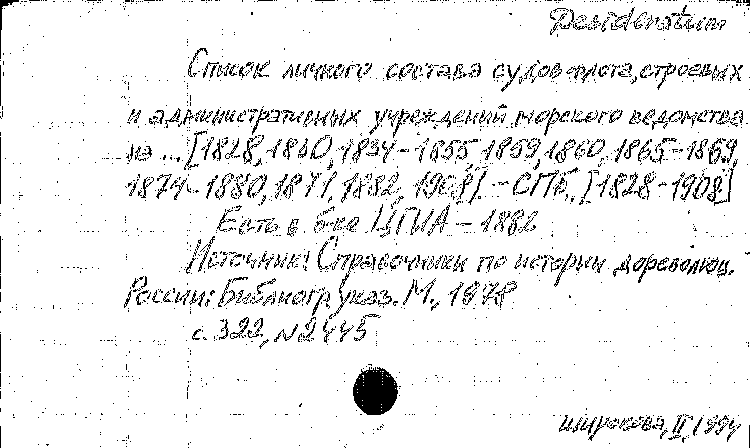 Desideratum
Список личного состава судов флота, строевых
и административных учреждений морского ведомства
на ... [1828, 1830, 1834-1855, 1859, 1860, 1865-1869,
1874-1880, 1871, 1882, 1908]. - СПб., [1828-1908]
Есть в б-ке ЦГИА - 1882
Источник: Справочники по истории дореволюц.
России: Библиогр. указ. М., 1978
с. 322, N 2445
Широкова, II, 1994